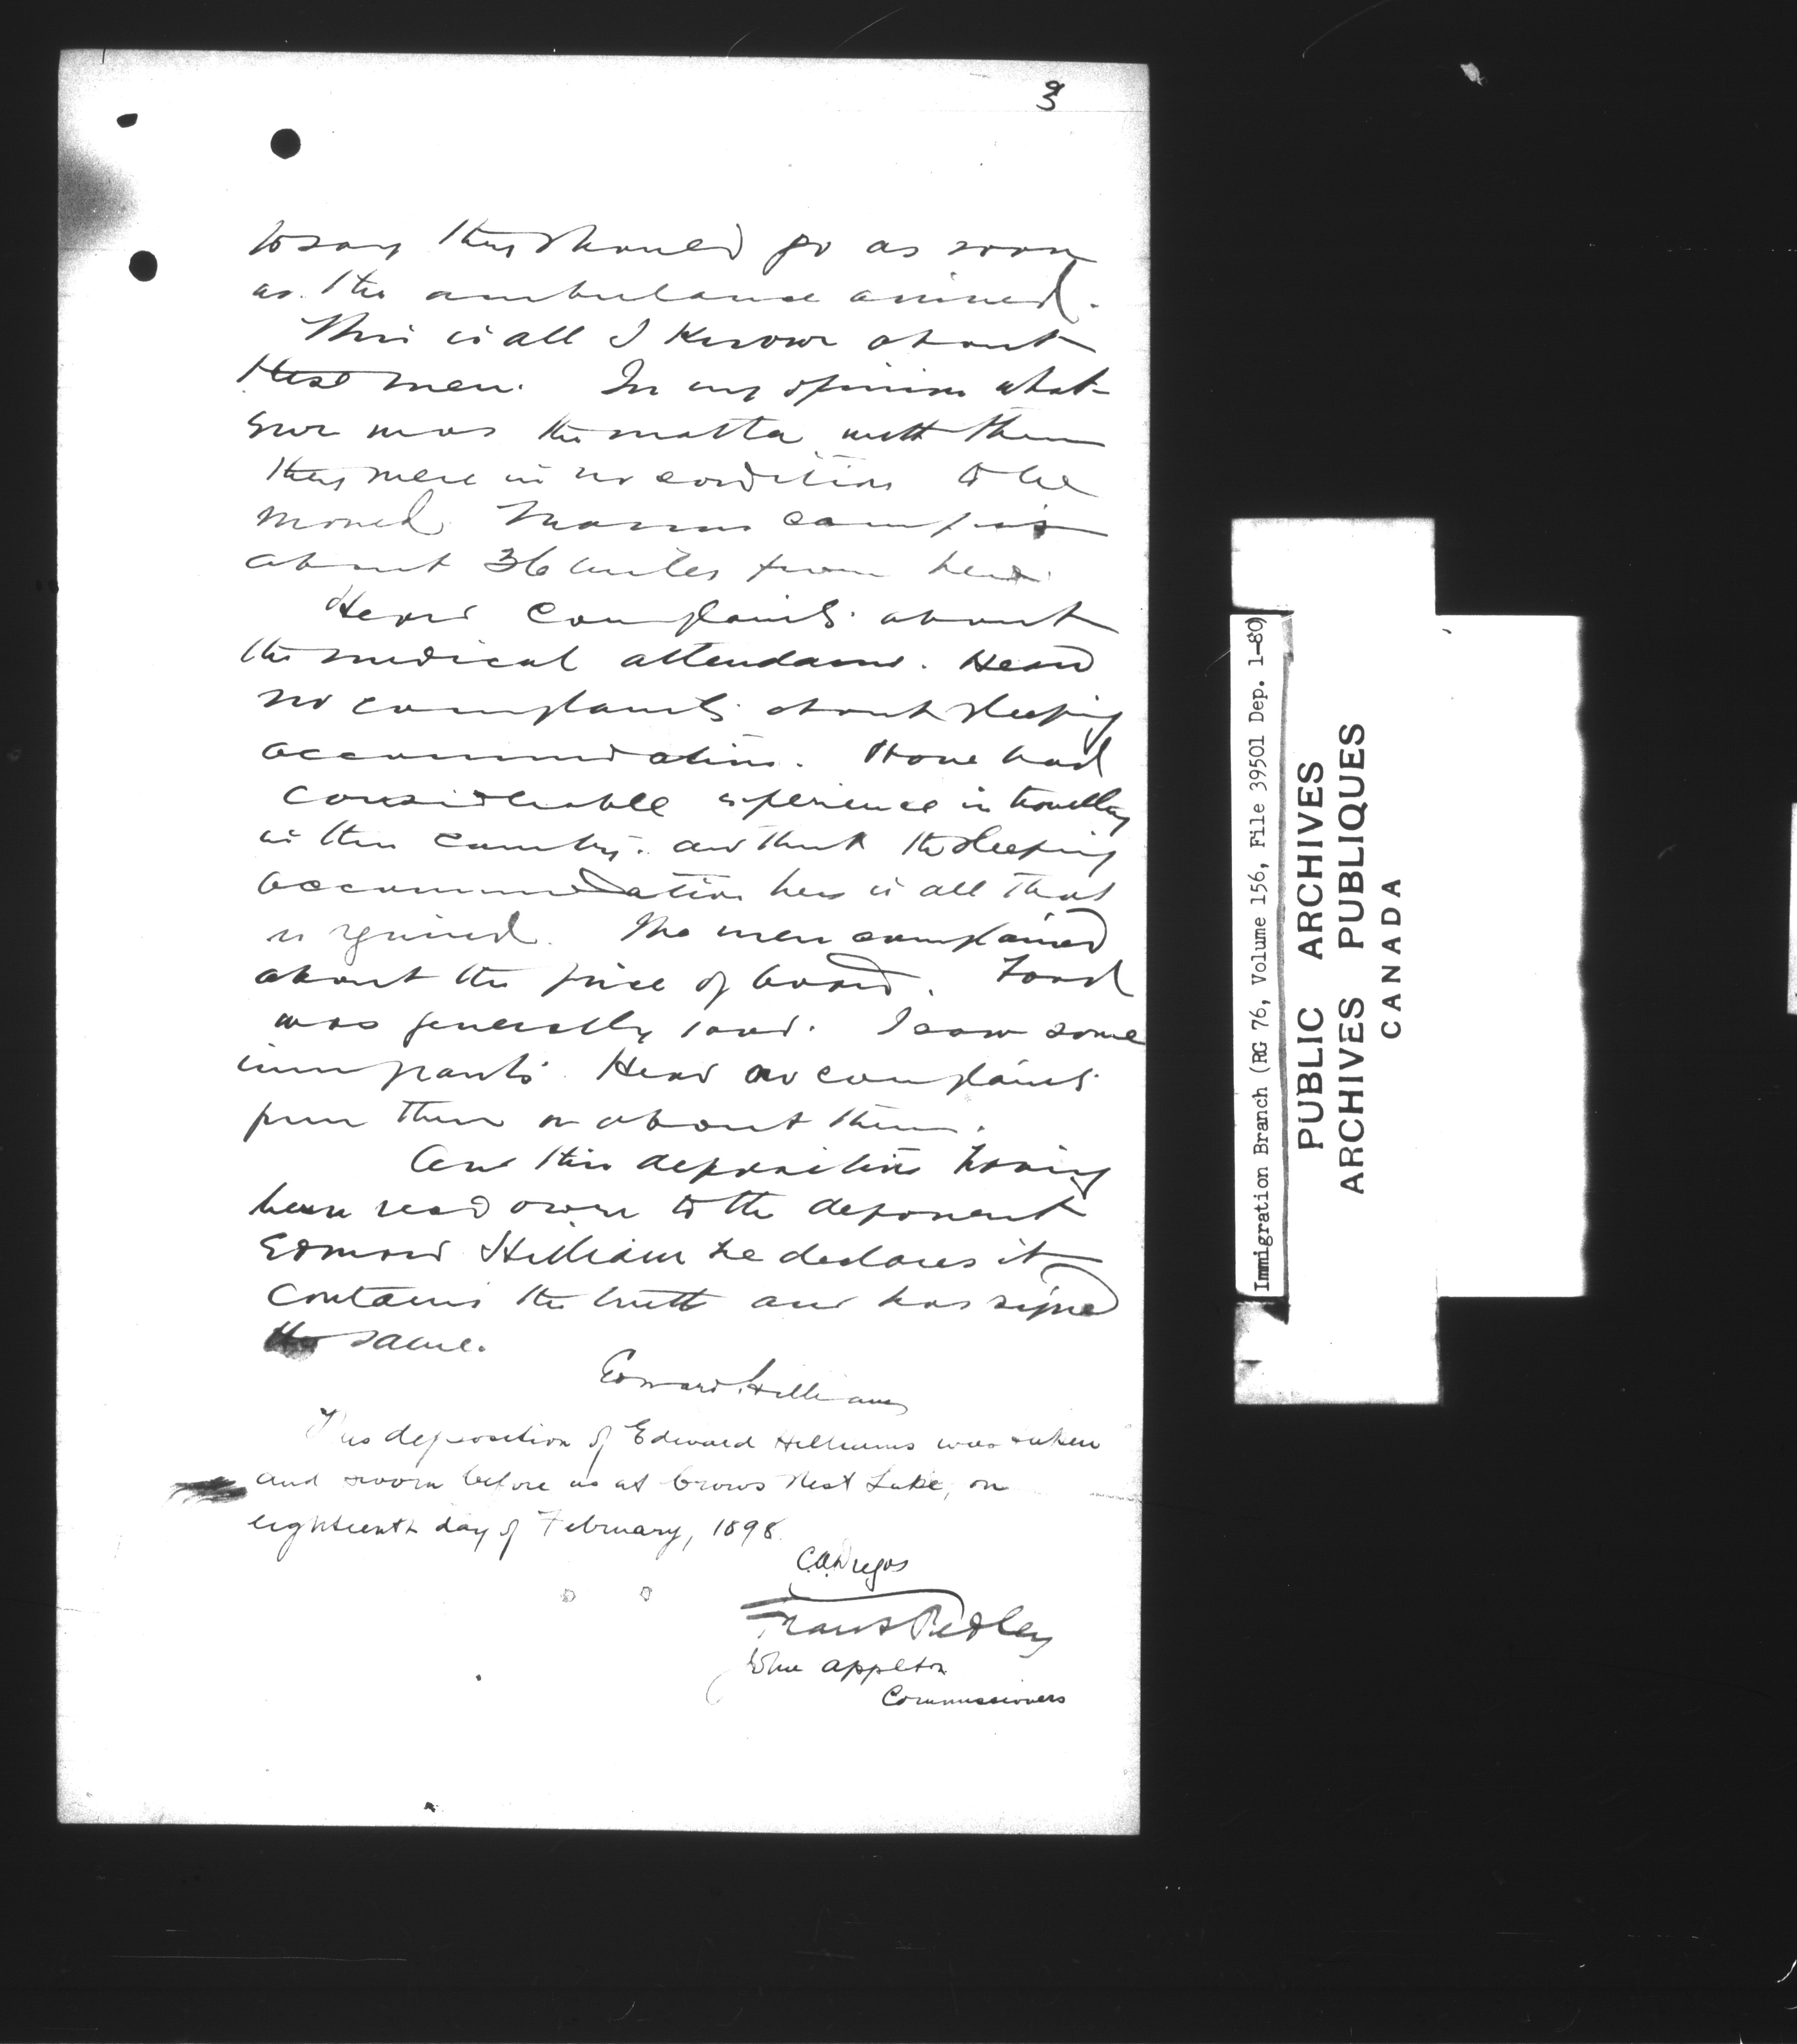 3
to say they should go as soon
as the ambulance arrived.
This is all I know about
these men. In my opinion what-
ever was the matter with them
they were in no condition to be
moved. camp is
about 36 miles from here.
Heard complaints about
the medical attendance. Heard
no complaints about sleeping
accommodation. Have had
considerable experience in travelling
in this country. and think the sleeping
accommodation here is all that
is required. The men complained
about the price of board. Food
was generally good. I saw some
immigrants. Heard no complaints
from them or about them.
And this deposition having
been read over to the deponent
Edward Hilliam he declares it
contains the truth and has signed
the same.
Edward Hilliams
This deposition of Edward Hilliams was taken
and sworn before us at Crows Nest Lake, on
eighteenth day of February, 1898.
C.A. Dugas
Frank Pedley
John Appleton
Commissioners
Immigration Branch (RG 76, Volume 156, File 39501 Dep. 1-80)
PUBLIC ARCHIVES
ARCHIVES PUBLIQUES
CANADA